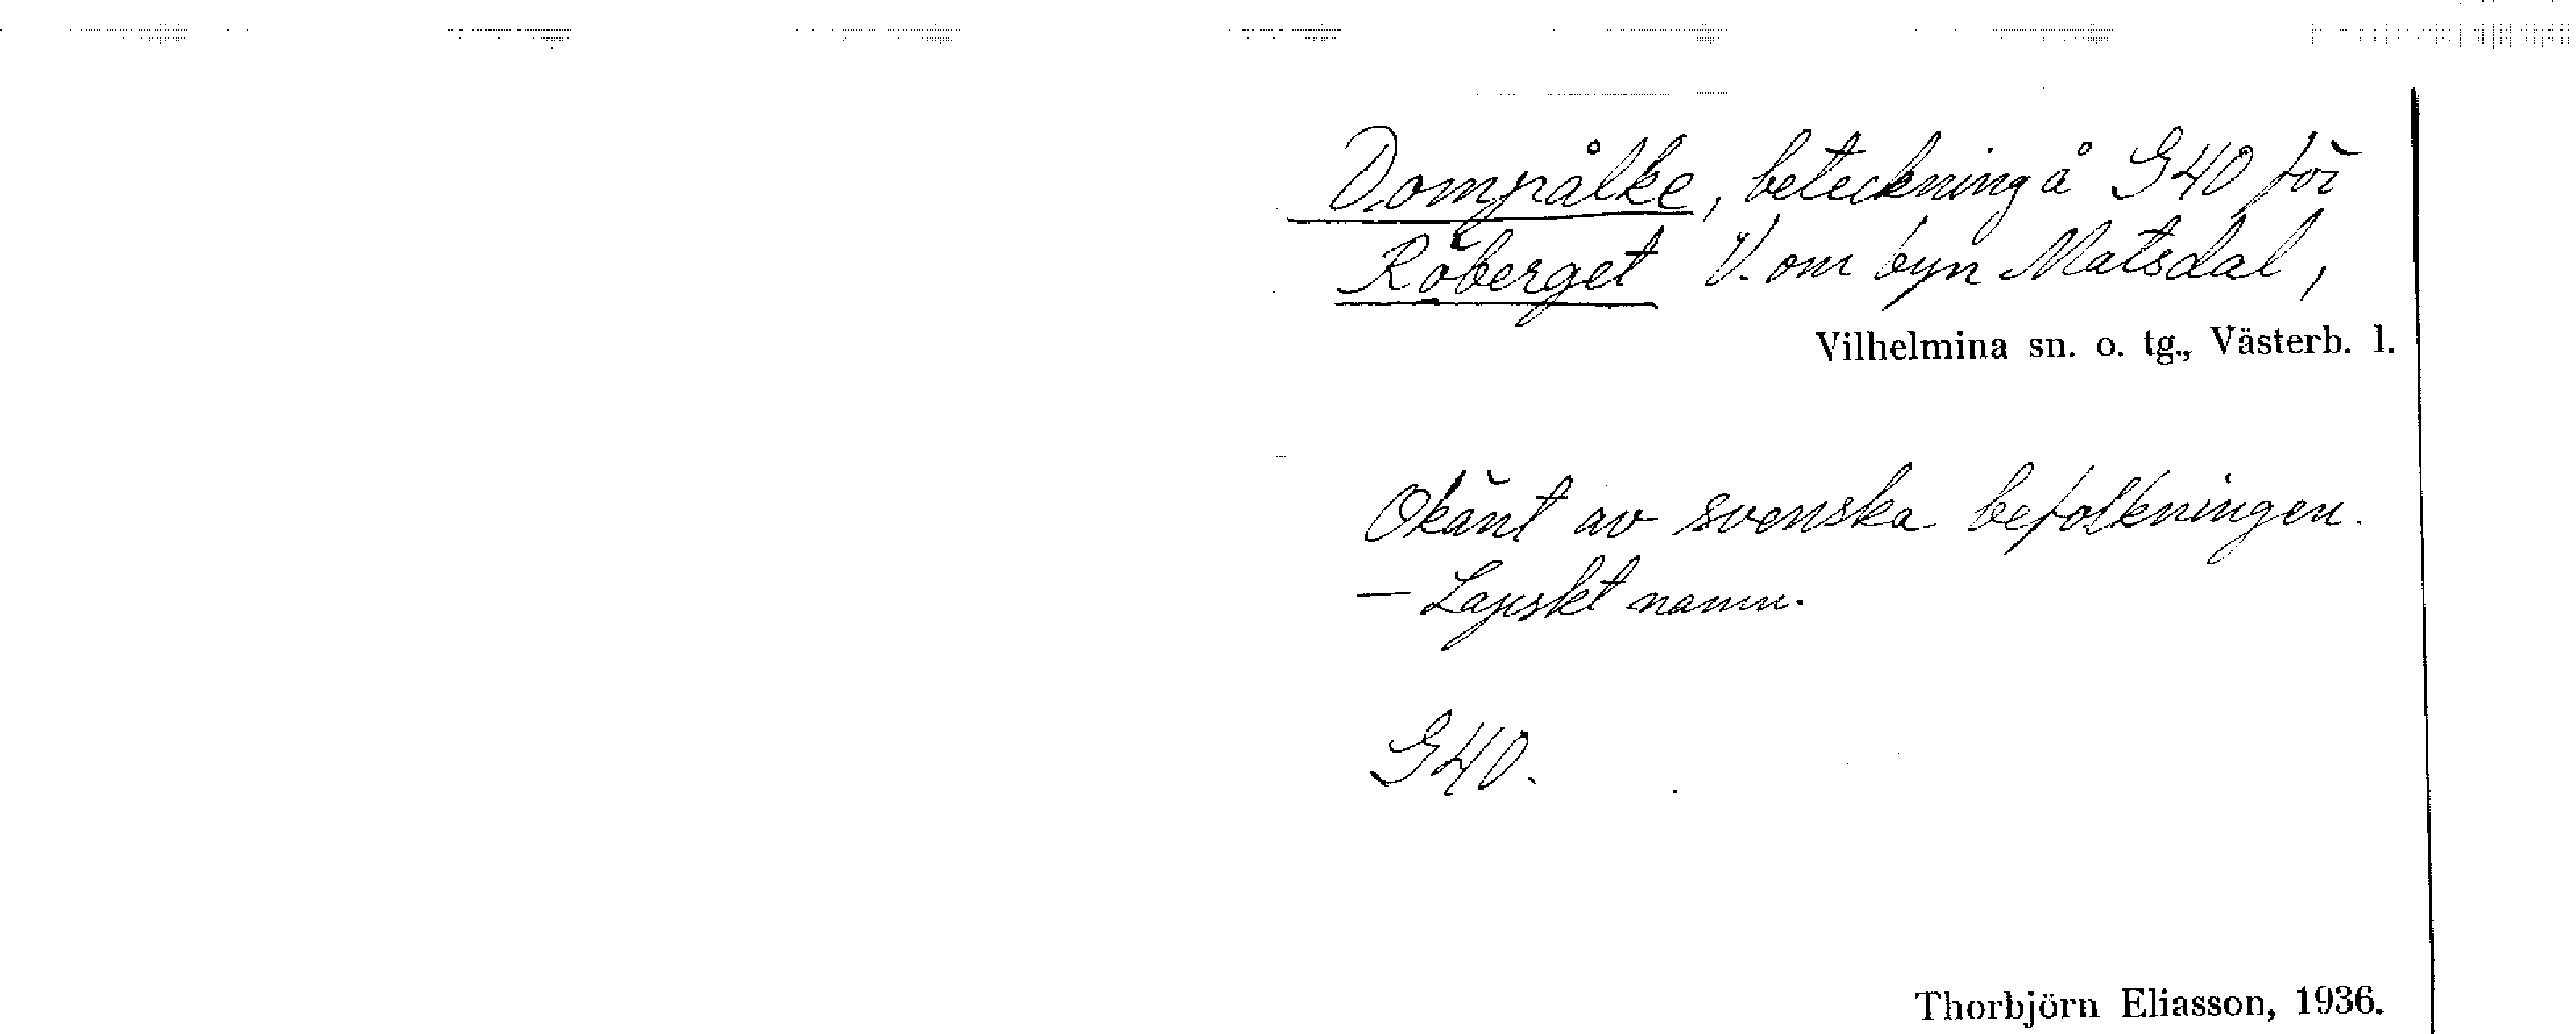 Dompålke, beteckning å G40 för
Röberget V. om byn Matsdal,
Vilhelmina sn. o. tg., Västerb. l.
Okänt av svenska befolkningen.
— Lapskt namn.
G40.
Thorbjörn Eliasson, 1936.